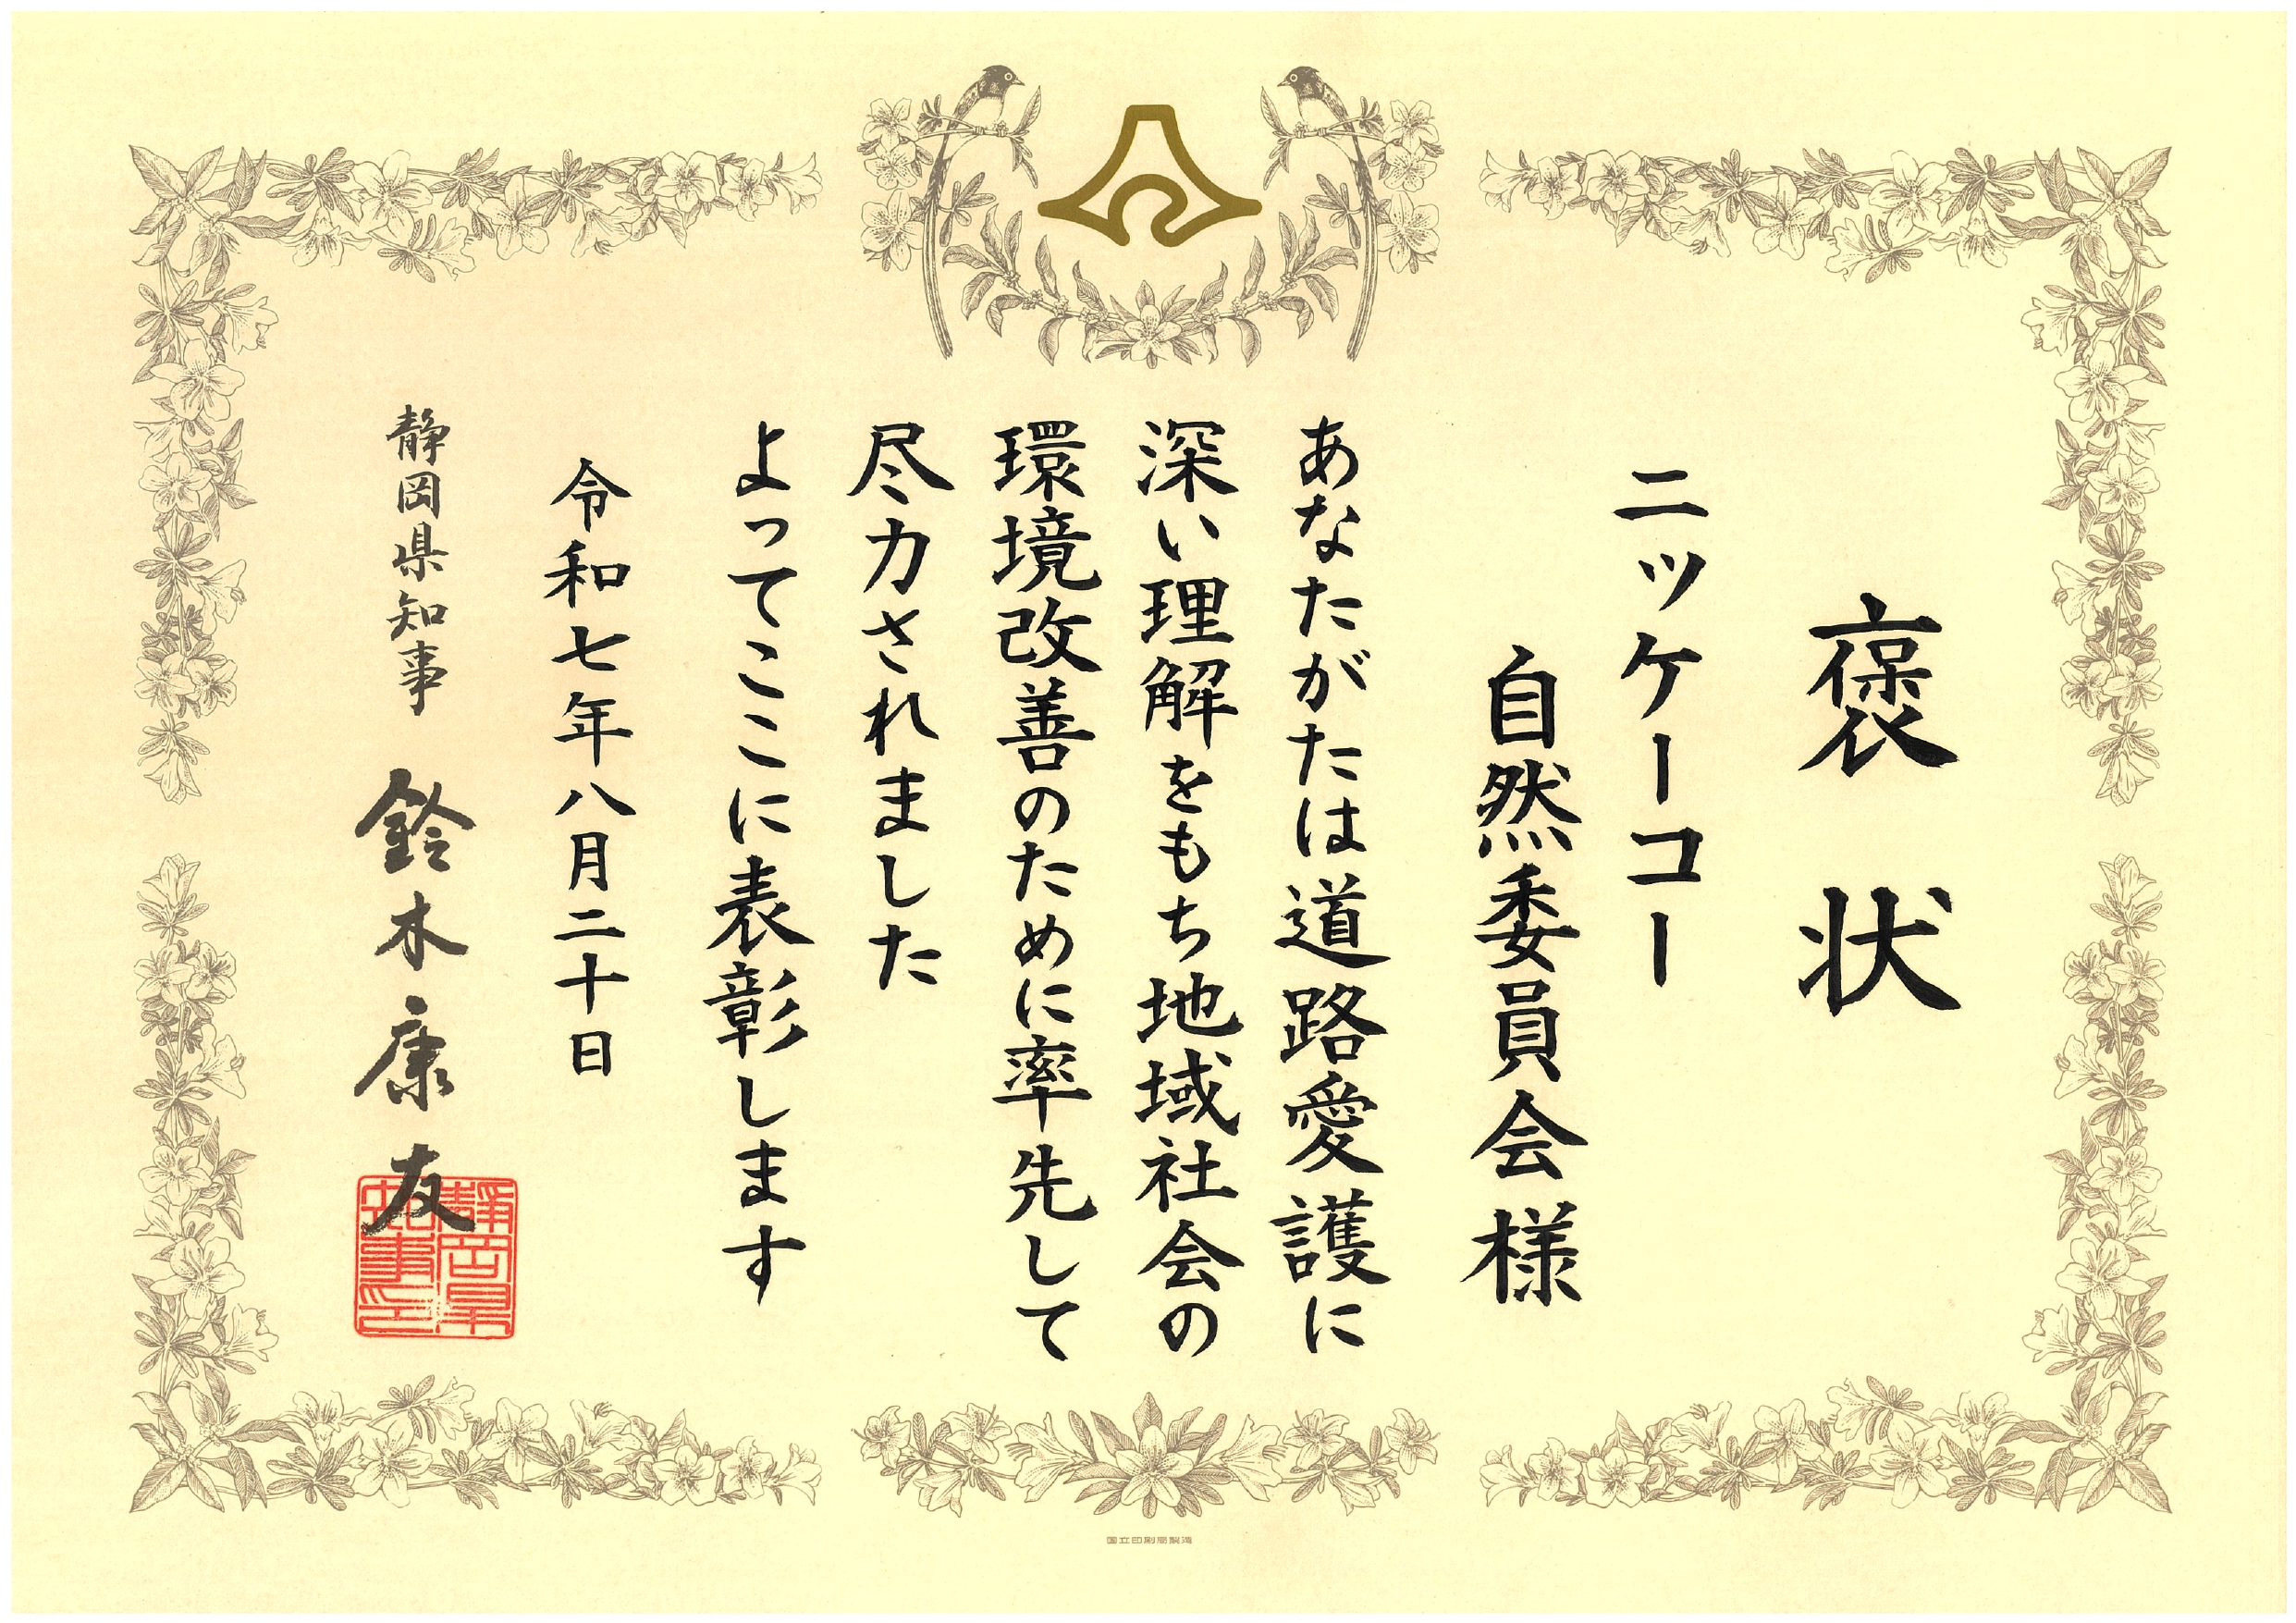 褒状
ニッケーコー
自然委員会様
あなたがたは道路愛護に
深い理解をもち地域社会の
環境改善のために率先して
尽力されました
よってここに表彰します
令和七年八月二十日
静岡県知事 鈴木康友
静岡県
知事印
国立印刷局製造